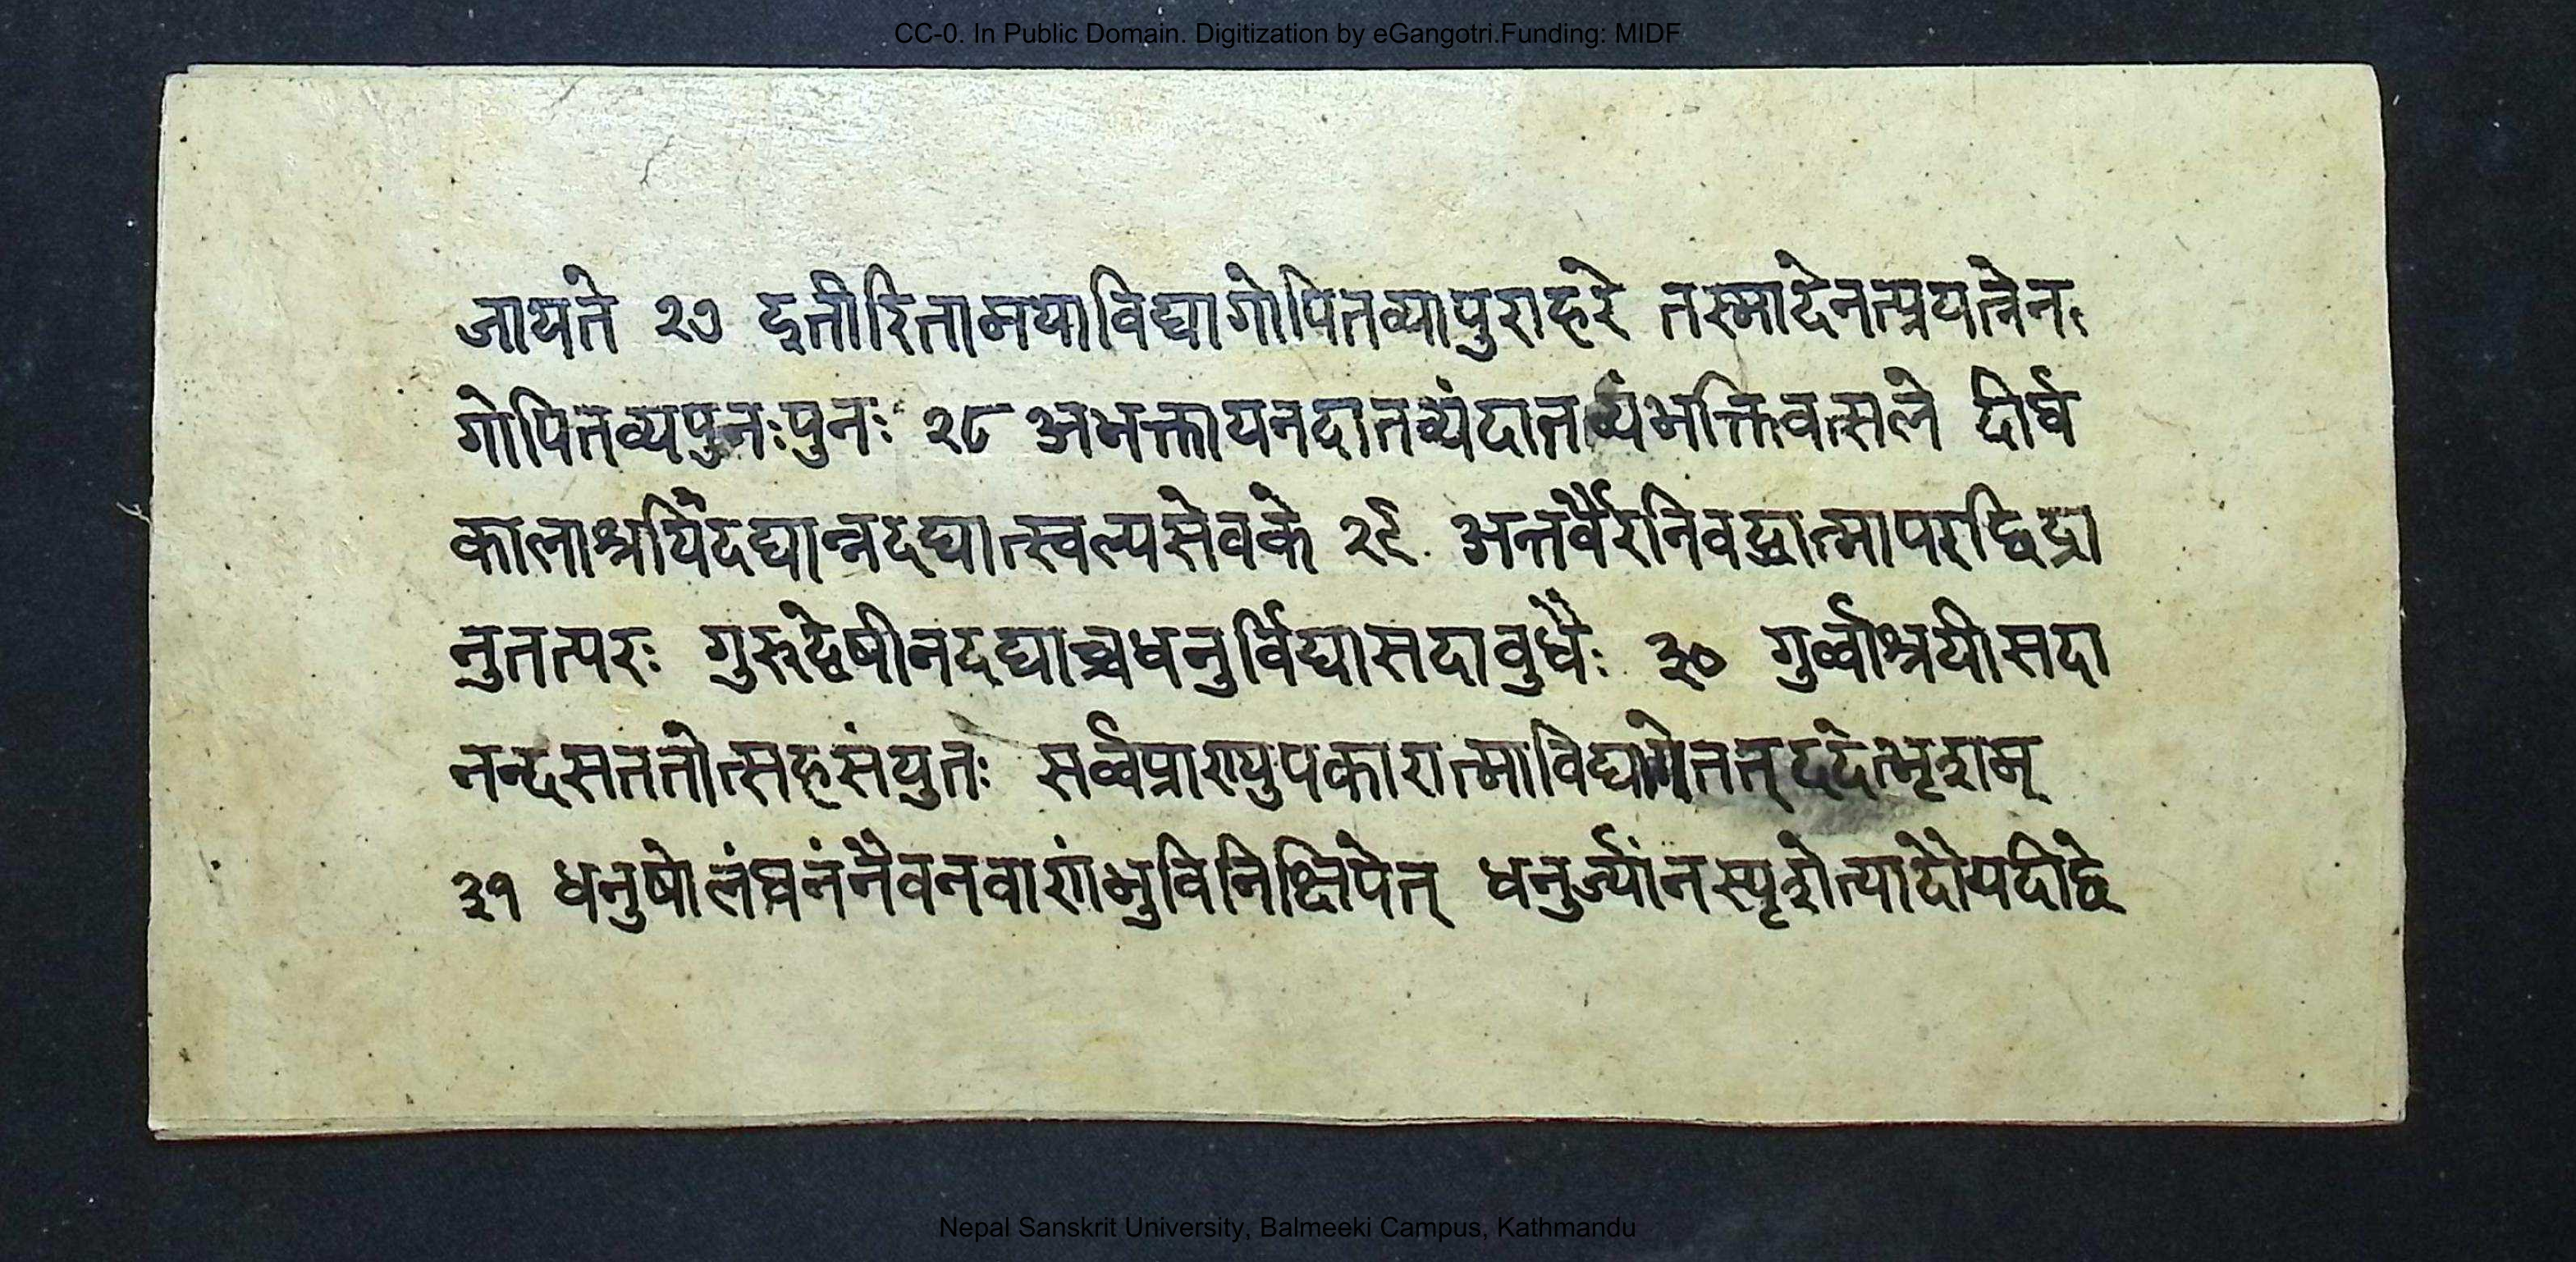 CC-0. In Public Domain. Digitization by eGangotri.Funding: MIDF
जायते २७ इतीरितामयाविद्यागोपितव्यापुराहरे तस्मादेनत्प्रयत्नेनः
गोपितव्यपुनःपुनः २८ अभक्तायनदातव्यंदातव्यंभक्तिवत्सले दीर्घ
कालाश्रयिंदद्यान्नदद्यात्स्वल्पसेवके २९ अन्तर्वैरनिवद्धात्मापरछिद्रा
नुतत्परः गुरुद्वेषीनदद्याच्चधनुर्विद्यासदावुधैः ३० गुर्व्वाश्रयीसदा
नन्दसततोत्सहसंयुतः सर्व्वप्राण्युपकारात्माविद्यामेतत् ददेत्भृशम्
३१ धनुषोलंघनंनैवनवाणंभुविनिक्षिपेत् धनुर्ज्यांनस्पृशेत्पादौयदीछे
Nepal Sanskrit University, Balmeeki Campus, Kathmandu